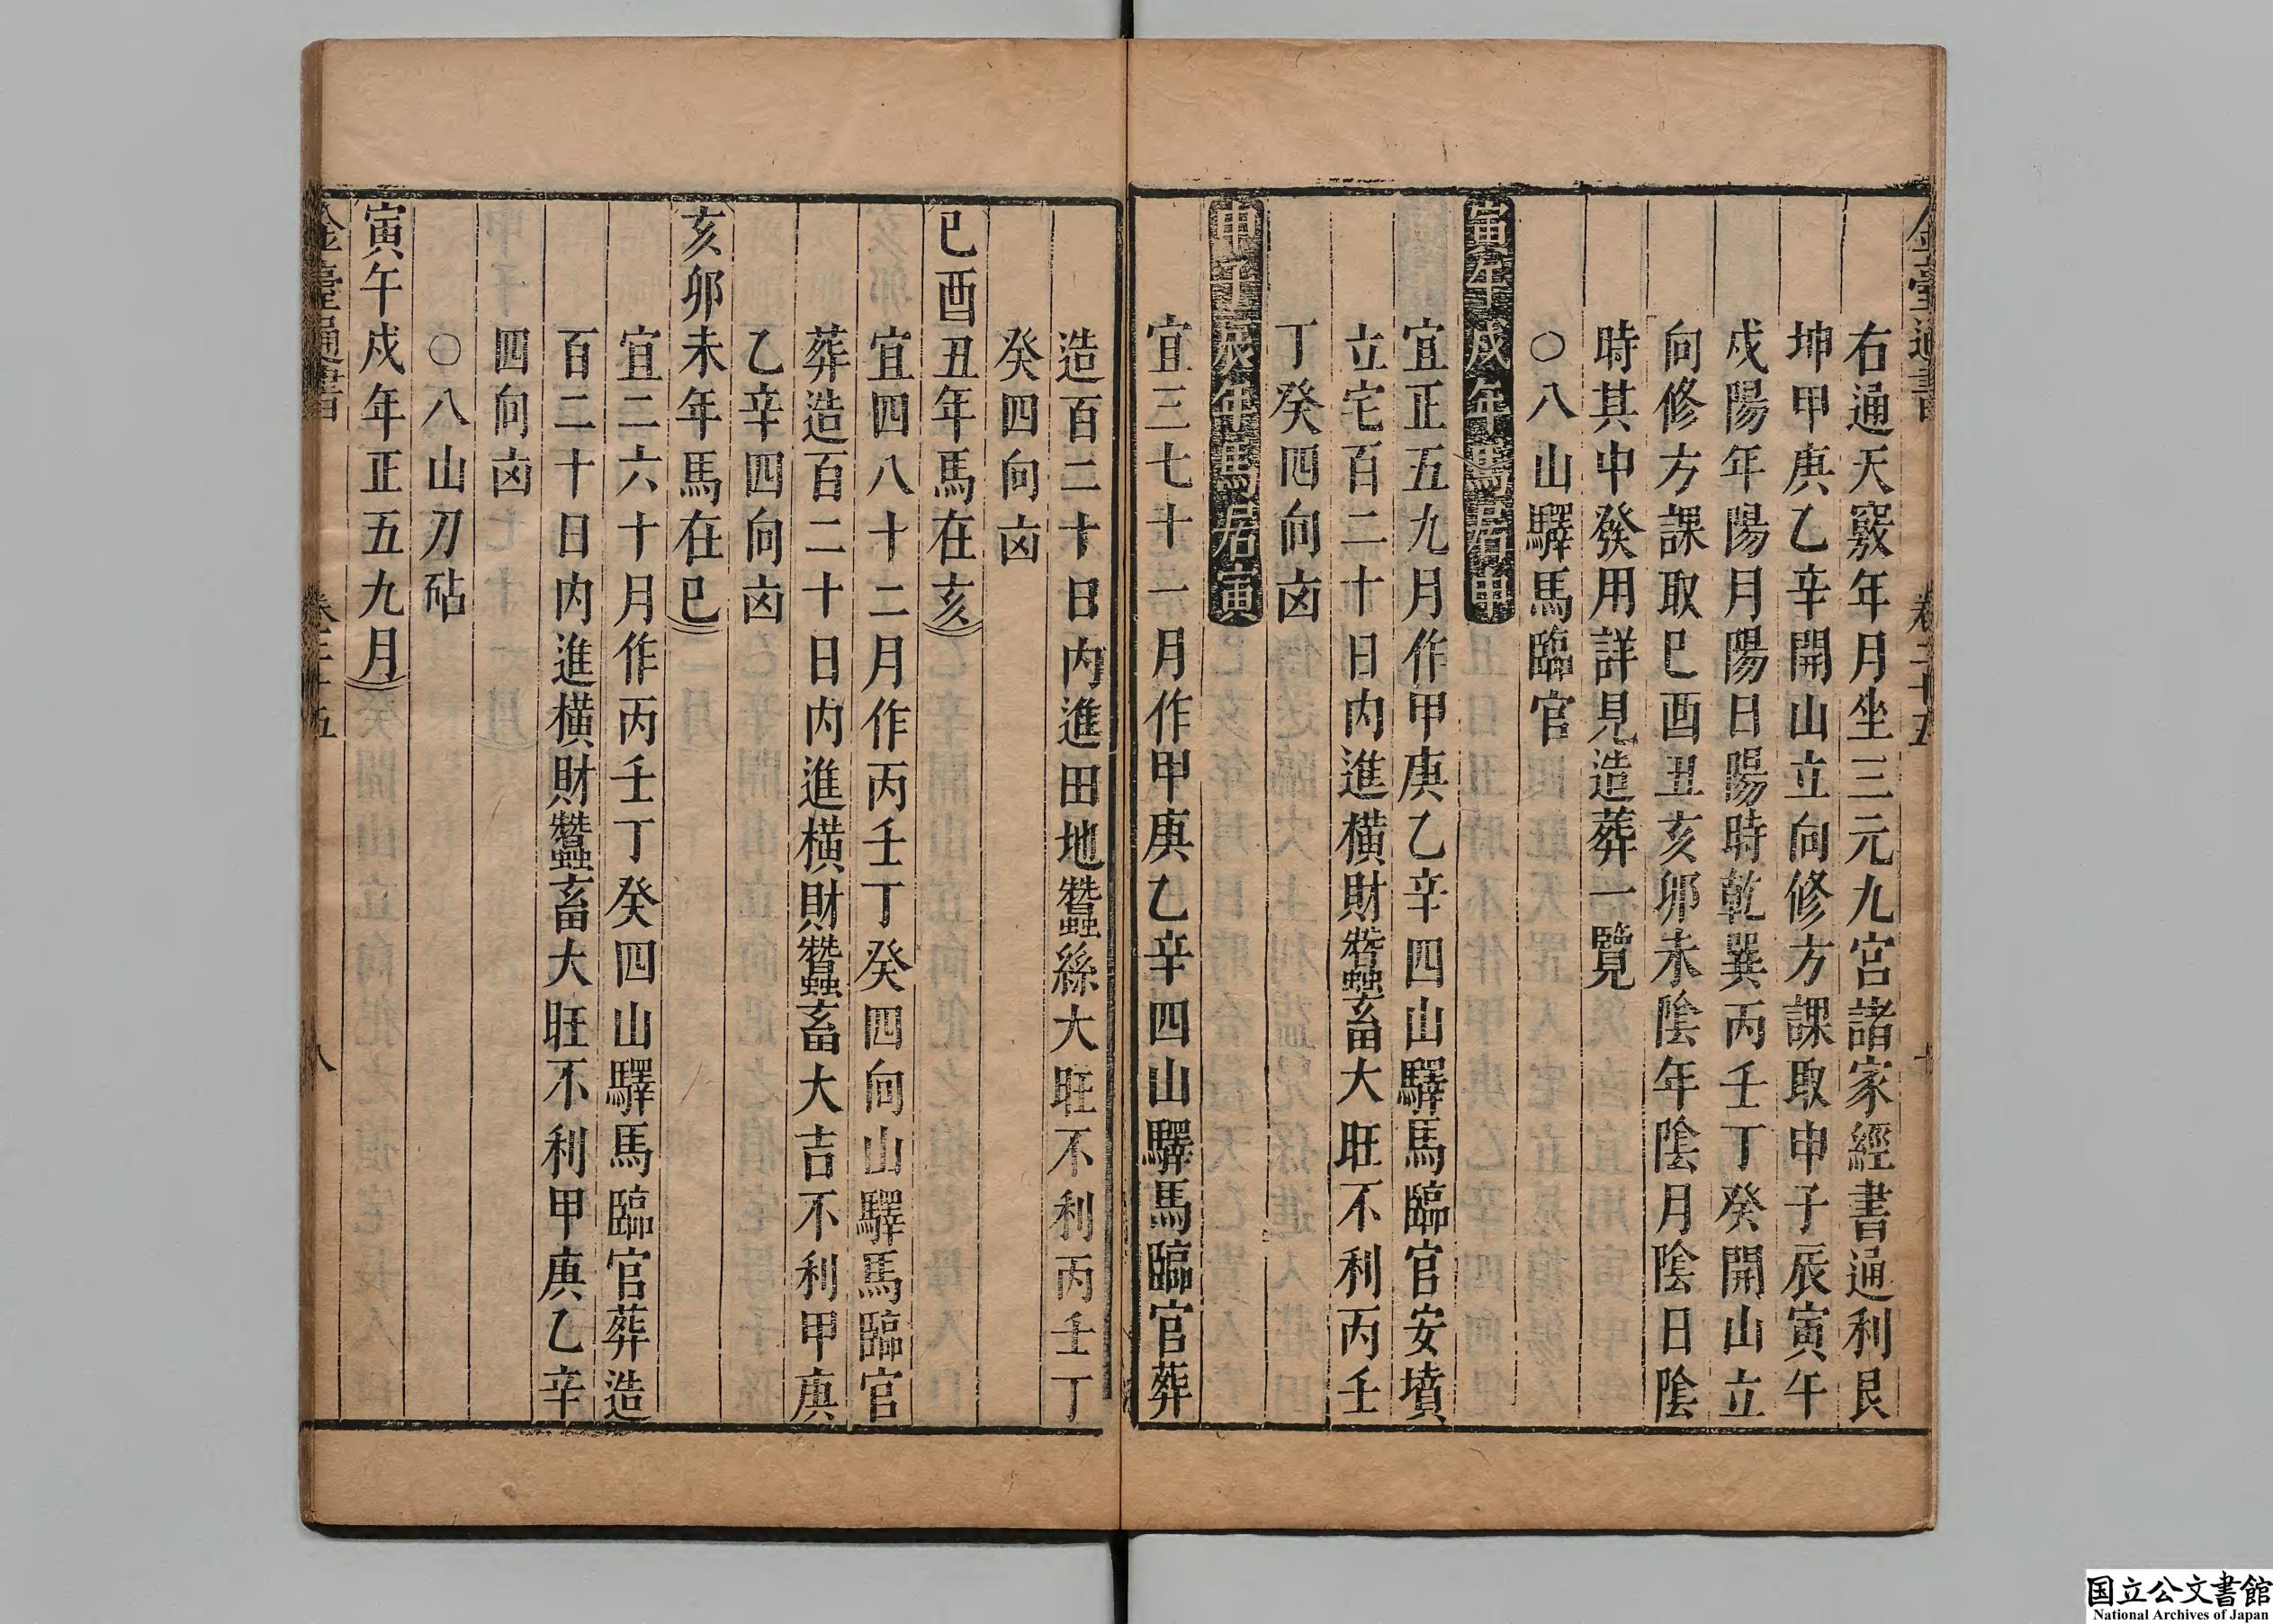 右通天竅年月坐三元九宮諸家經書通利艮
坤甲庚乙辛開山立向修方課取申子辰寅午
戍陽年陽月陽日陽時乾巽丙壬丁癸開山立
向修方課取巳酉丑亥卯未陰年陰月陰日陰
時其中發用詳見造葬一覽
○八山驛馬臨官
寅午戍年馬居申
宜正五九月作甲庚乙辛四山驛馬臨官安墳
立宅百二十日内進橫財蠶畜大旺不利丙壬
丁癸四向凶
申子辰年馬居寅
宜三七十一月作甲庚乙辛四山驛馬臨官葬
造百二十日内進田地蠶絲大旺不利丙壬丁
癸四向凶
巳酉丑年馬在亥
宜四八十二月作丙壬丁癸四向山驛馬臨官
葬造百二十日内進橫財蠶畜大吉不利甲庚
乙辛四向凶
亥卯未年馬在巳
宜二六十月作丙壬丁癸四山驛馬臨官葬造
百二十日内進橫財蠶畜大旺不利甲庚乙辛
四向凶
○八山刀砧
寅午戍年正五九月
金臺通書 卷二十五 八
国立公文書館
National Archives of Japan